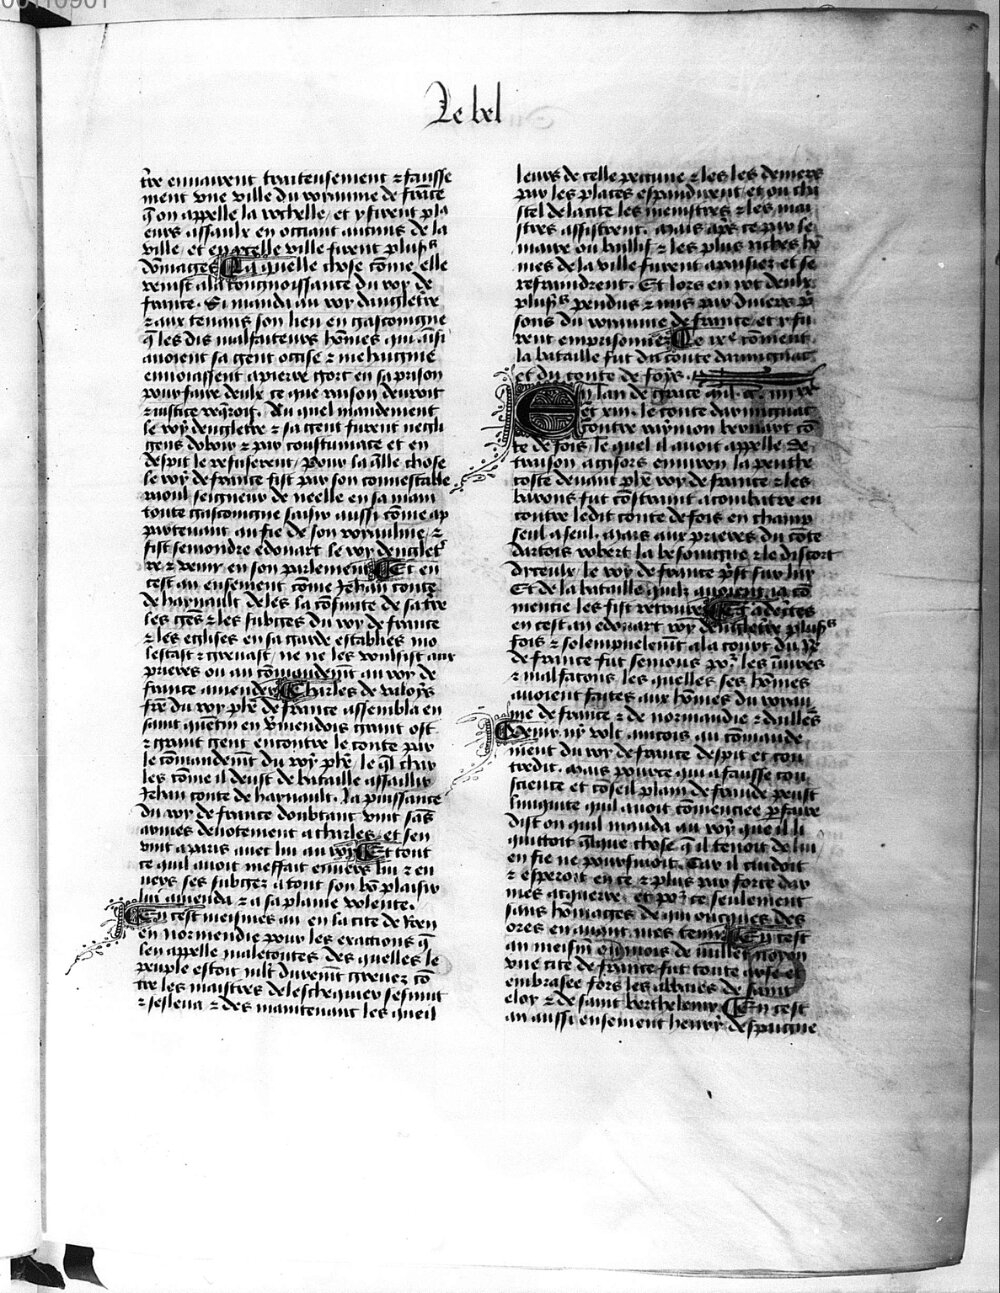 Le bel
tre ennairent traiteusement ⁊ fausse
ment vne ville du royaume de frāce
q̄ on appelle la rochelle / et y firent plu
eurs assaulx en occiant aucuns de la
ville / et en ycelle ville firent plusrs
dōmages La quelle chose cōme elle
venist a la congnoissance du roy de
france . Si manda au roy dangletrre
⁊ aux tenans son lieu en gascoingne
q̄ les dis malfaiteurs hōmes qui ainsi
auoient sa gent occise ⁊ mehaignie
enuoiassent a pierregort en sa prison
pour faire deulx ce que raison deuroit
⁊ iustice req̄roit . Au quel mandement
le roy dengletrre ⁊ sa gent furent negli
gens dobeir ⁊ par coustumace et en
despit le refuserent / Pour la q̄lle chose
le roy de france fist par son connestable
raoul seigneur de neelle en sa main
toute gascoingne saisir aussi cōme ap
partenant au fie de son royaulme / ⁊
fist semondre edouart le roy denglet
rre ⁊ venir en son parlement Et en
cest an ensement cōme Jehan conte
de haynault deles la cōfinite de sa tre
les gēs ⁊ les subgies du roy de france
⁊ les eglises en sa garde establies mo
lestast ⁊ greuast / ne ne les voulsist aux
prieres ou au cōmandemt̄ au roy de
france amender Charles de valoys
frē du roy phē de france assembla en
saint quentin en v̄mendois grant ost
⁊ grant gent encontre le conte par
le cōmandemt̄ du roy phē / le q̄l char
les cōme il deust de bataille assaillir
Jehan conte de haynault . La puissance
du roy de france doubtant vint sās
armes deuotement a charles / et sen
vint a paris auec lui au roy Et tout
ce quil auoit meffait enuers lui ⁊ en
uers ses subgez a tout son bō plaisir
lui amenda ⁊ a sa plaine volente .
En cest meismes an en la cite de Roen
en normendie pour les exactions q̄
len appelle maletoutes des quelles le
peuple estoit mlt durem̄t greuez cō
tre les maistres de leschequier sesmut
⁊ sesleua ⁊ des maintenant les cueil
leurs de celle pecune ⁊ les les deniers
par les places espandirent / et ou cha
stel de la cite les menistres ⁊ les mai
stres assistrent . Mais aps ce par le
maire ou baillif ⁊ les plus riches hō
mes de la ville furent apaisiez et se
refraindrent . Et lors en rot deulx
plusrs pendus ⁊ mis par diuers p̄
sons du royaume de france / et y fu
rent emprisonnez Le coment
la bataille fut du conte darmignac
et du conte de foys .
En lan de grace mil . cc . iiii xx
et xiii . le conte darmignac
contre raymon bernart cō
te de fois / le quel il auoit appelle de
traison a gisors enuiron la penthe
coste deuant phē roy de france ⁊ les
barons fut cōstraint a combatre en
contre ledit conte de fois en champ
seul a seul . Mais aux prieres du cōte
dartois robert la besoingne ⁊ le discort
diceulx le roy de france p̄st sur luy
Et de la bataille quilz auoient ia cō
mencie les fist retraire Et adecces
en cest an edouart roy dengletrre plusrs
fois ⁊ solempnelem̄t a la court du roy
de france fut semons por les iniures
⁊ malfacons les quelles ses hōmes
auoient faites aux hōmes du royau
me de france ⁊ de normandie ⁊ daillēs
Venir ny volt aincois au cōmande
ment du roy de france despit et con
tredit . Mais pource qui a fausse con
science et cōseil plain de fraude peust
liniquite quil auoit cōmenciee p̄faire
dist on quil manda au roy que il li
quittoit q̄lque chose q̄ il tenoit de lui
en fie ne poursuioit . Car il cuidoit
⁊ esperoit en ce ⁊ plus par force dar
mes acquerre / et por ce seulement
sans hōmages de qui oncques des
ores en auant mes tenir En cest
an meism̄ ou mois de iuillet noyon
vne cite de france fut toute arse et
embrasee fors les abbaies de saint
eloy ⁊ de saint berthelemy En cest
an aussi ensement henry despaigne